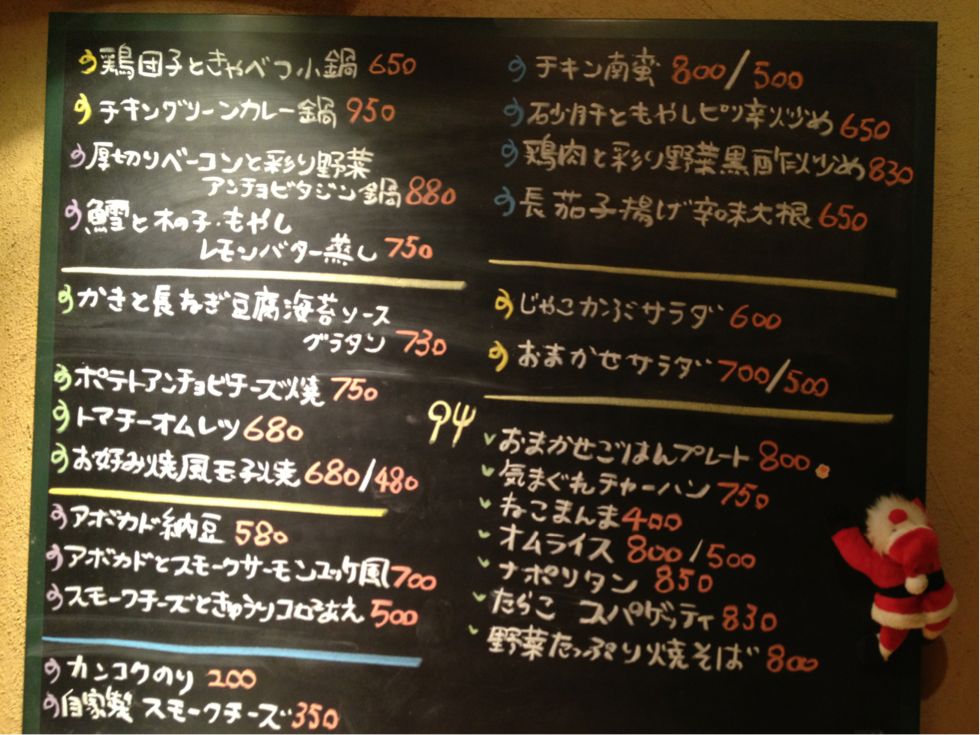 鶏団子ときゃべつ小鍋 650
チキングリーンカレー鍋 950
厚切りベーコンと彩り野菜
アンチョビタジン鍋 880
鱈と木の子・もやし
レモンバター蒸し 750
かきと長ねぎ豆腐海苔ソース
グラタン 730
ポテトアンチョビチーズ焼 750
トマチーオムレツ 680
お好み焼風玉子焼 680/480
アボカド納豆 580
アボカドとスモークサーモンユッケ風 700
スモークチーズときゅうりコロコロあえ 500
カンコクのり 200
自家製 スモークチーズ 350
チキン南蛮 800/500
砂肝ともやしピリ辛炒め 650
鶏肉と彩り野菜黒酢炒め 830
長茄子揚げ辛味大根 650
じゃこかぶサラダ 600
おまかせサラダ 700/500
おまかせごはんプレート 800
気まぐれチャーハン 750
ねこまんま 400
オムライス 800/500
ナポリタン 850
たらこ スパゲッティ 830
野菜たっぷり焼そば 800